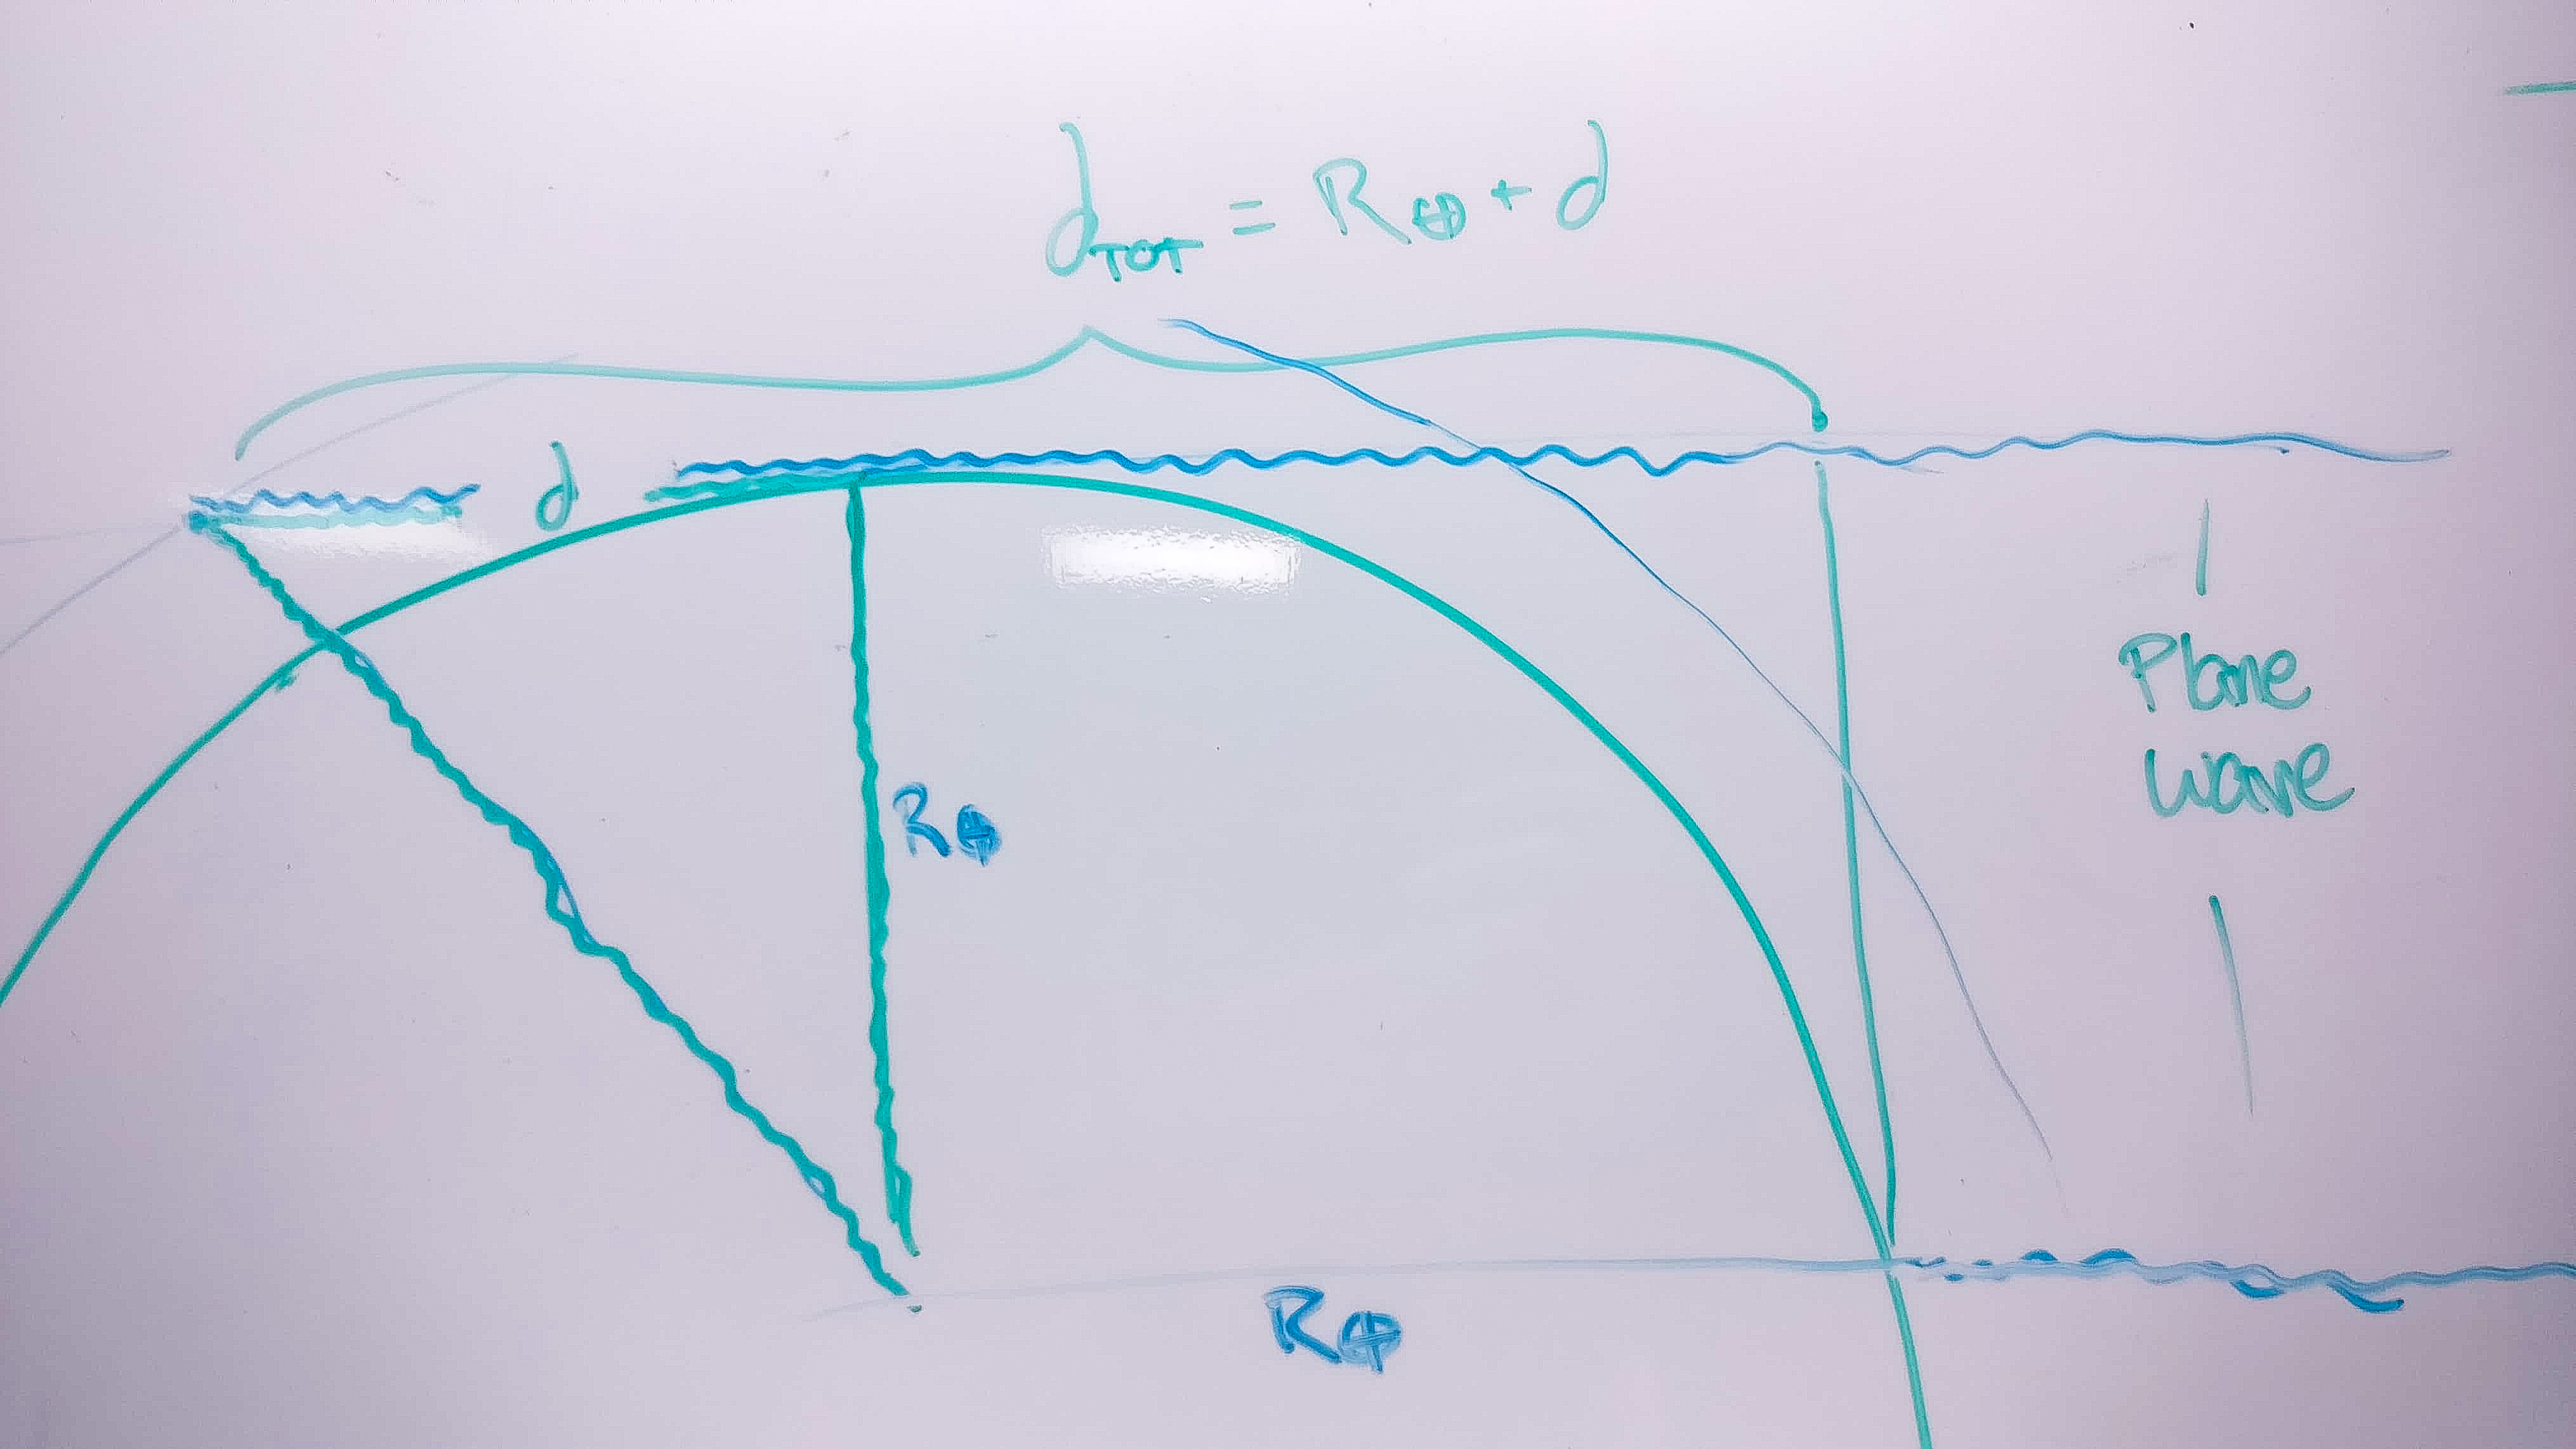 d_TOT = R⊕ + d
d
R⊕
Plane
wave
R⊕